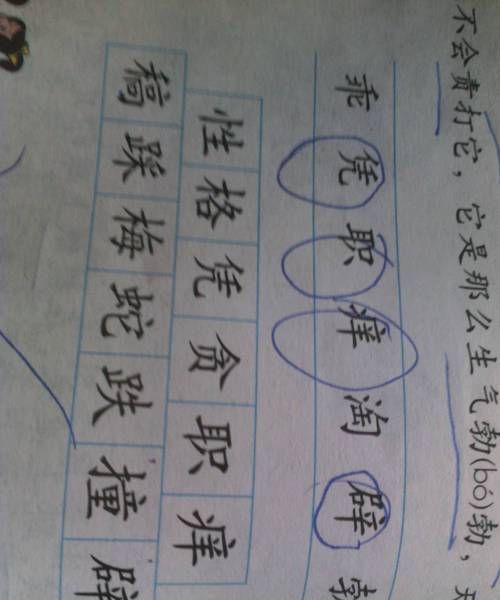 不会责打它，它是那么生气勃(bó)勃，天
乖 凭 职 痒 淘 辟 勃
性 格 凭 贪 职 痒
稿 踩 梅 蛇 跌 撞 辟